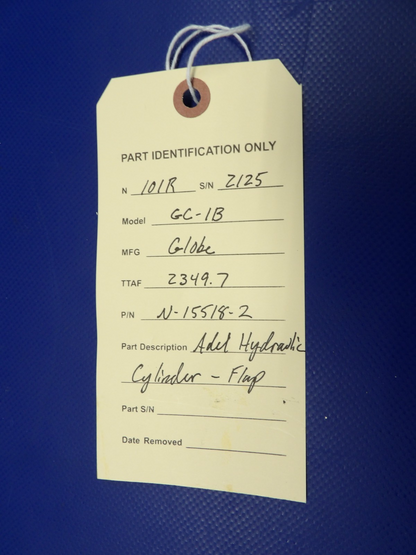 PART IDENTIFICATION ONLY
N 101R S/N 2125
Model GC-1B
MFG Globe
TTAF 2349.7
P/N N-15518-2
Part Description Adel Hydraulic
Cylinder - Flap
Part S/N
Date Removed